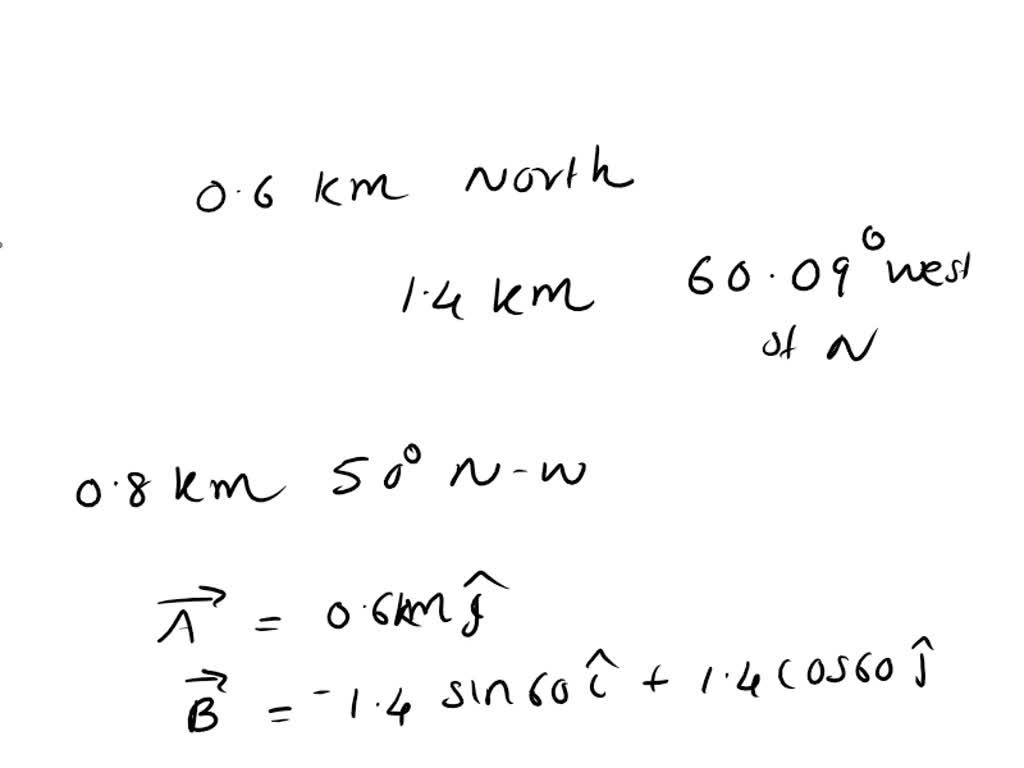 0.6 km North
1.4 km 60.09° west
of N
0.8 km 50° N-W
A⃗ = 0.6km ĵ
B⃗ = -1.4 sin60 î + 1.4 cos60 ĵ